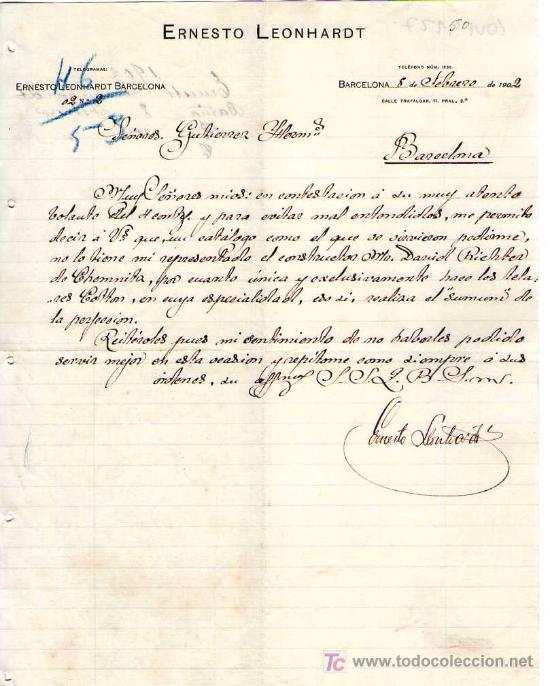 ERNESTO LEONHARDT
50
TELEGRAMAS:
TELÉFONO NÚM. 1135
ERNESTO LEONHARDT BARCELONA
46
02 2
53
BARCELONA, 8 de Febrero de 1902
CALLE TRAFALGAR, 17, PRAL. 2ª
Señores Gutierrez Hermˢ
Barcelona
Muy Señores mios: en contestación á su muy atento
volante del 4 cte, y para evitar mal entendidos, me permito
decir á Vˢ que, un catálogo como el que se sirvieron pedirme,
no lo tiene mi representado el constructor Mr. David Richter
de Chemnitz, por cuanto única y exclusivamente hace los tela-
res Cotton, en cuya especialidad, eso si, realiza el "sumum" de
la perfeccion.
Reitéroles pues mi sentimiento de no haberles podido
servir mejor en esta ocasion y repítome como siempre á sus
órdenes, su affmo S. S. Q. B. S. M.
Ernesto Leonhardt
TC www.todocoleccion.net